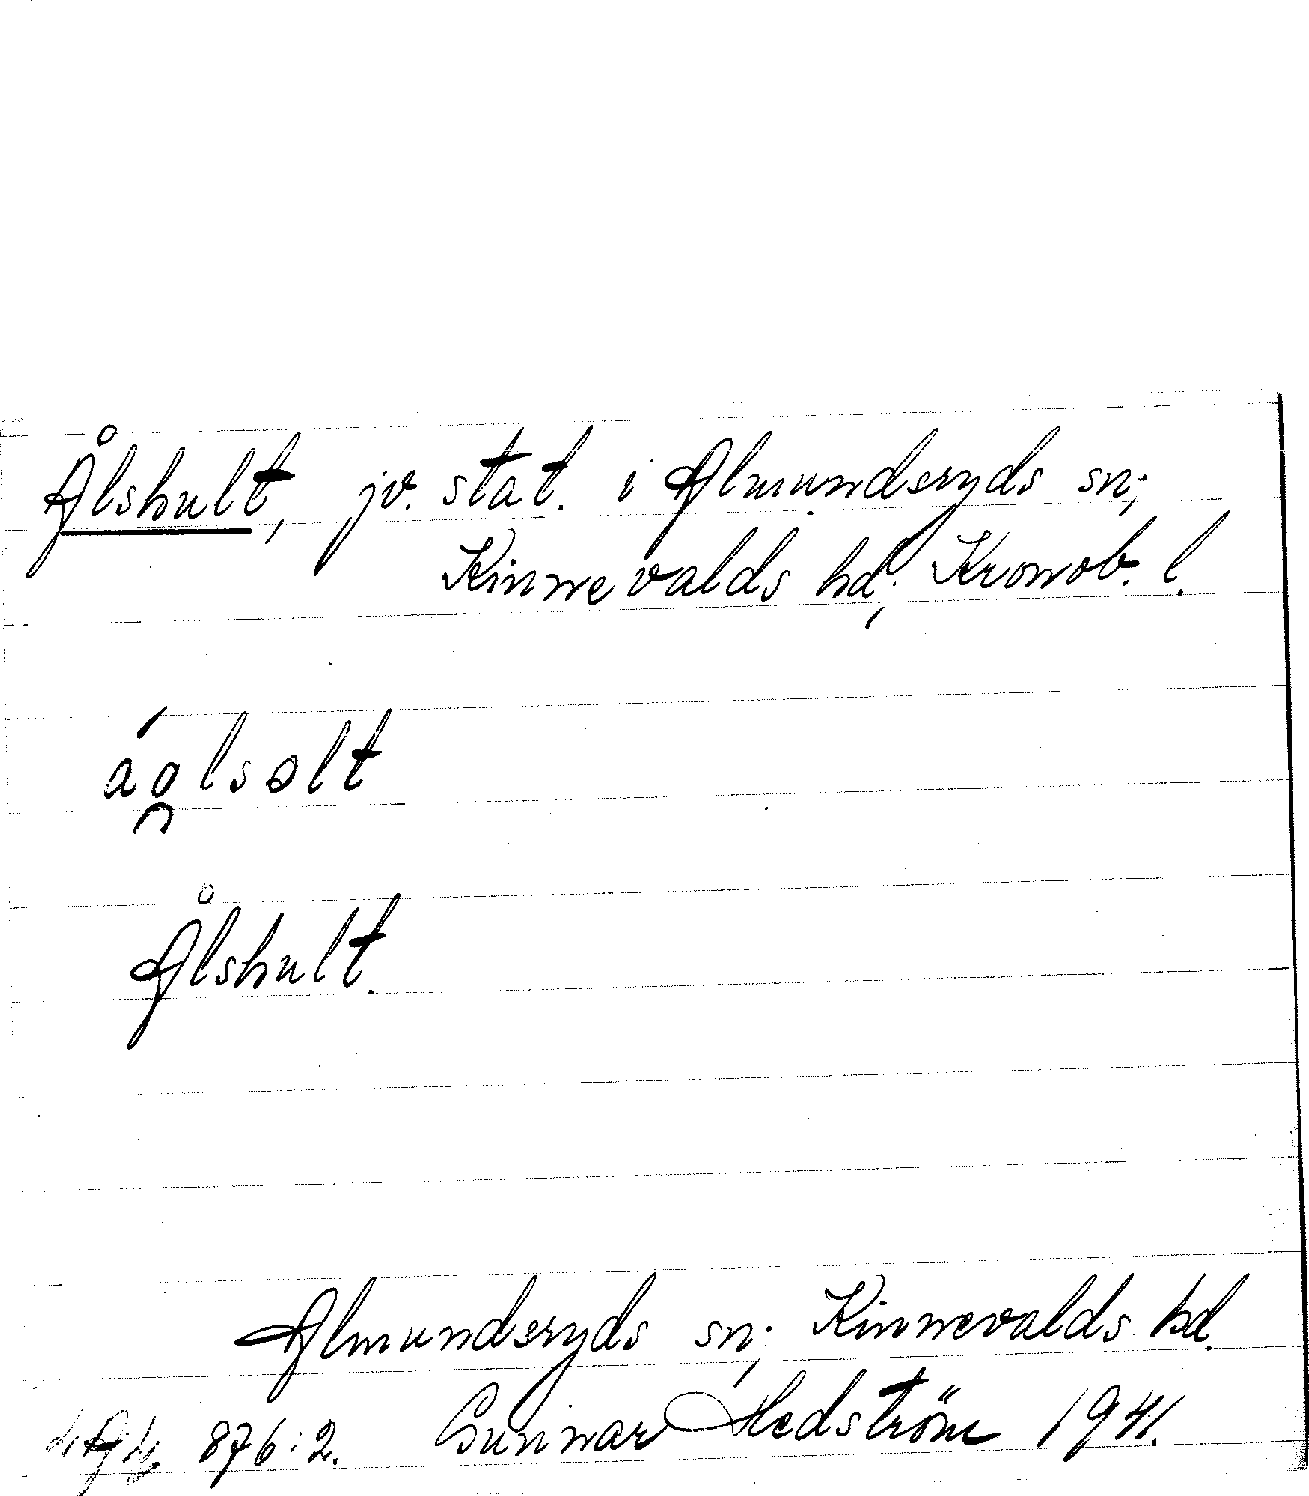 Ålshult, jv. stat. i Almundsryds sn;
Kinnevalds hd; Kronob. l.
áo̯lsɵlt
Ålshult.
Almundsryds sn; Kinnevalds hd.
876:2. Gunnar Hedström 1941.